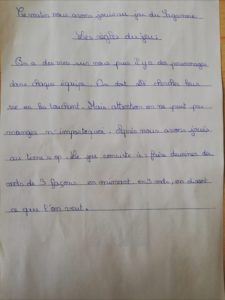 Ce matin nous avons joué au jeu du Sagamore
Les règles du jeu:
On a des vies sur nous puis il y a des personnages
dans chaque équipe. On doit se chercher
en se touchant. Mais attention on ne peut pas
manger n'importe qui. Après nous avons joués
au time's up. Le jeu consiste à: faire deviner des
mots de 3 façons en mimant en 1 mot, en disant
ce que l'on veut.